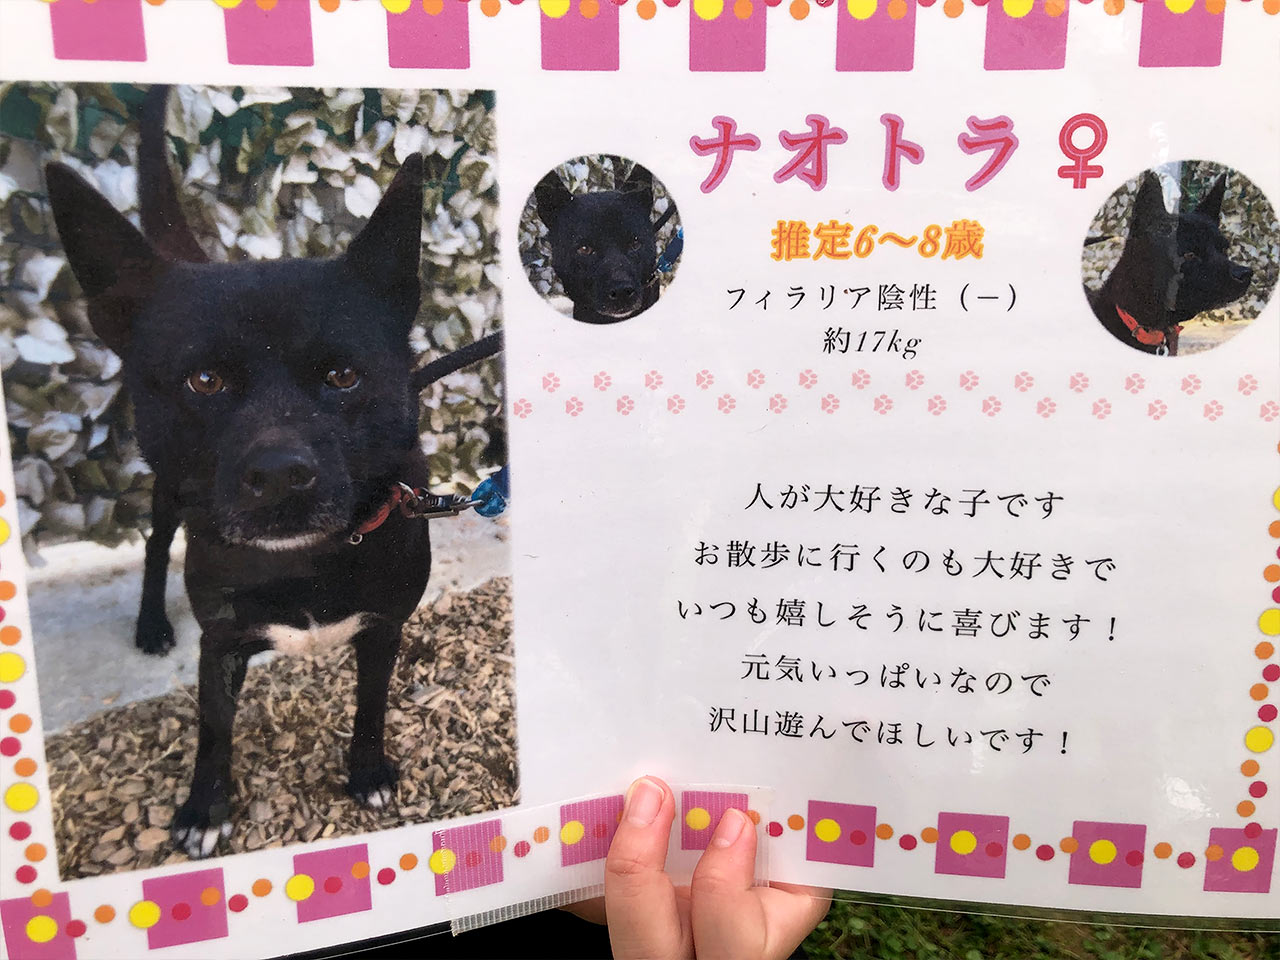 ナオトラ♀
推定6～8歳
フィラリア陰性（－）
約17kg
人が大好きな子です
お散歩に行くのも大好きで
いつも嬉しそうに喜びます！
元気いっぱいなので
沢山遊んでほしいです！